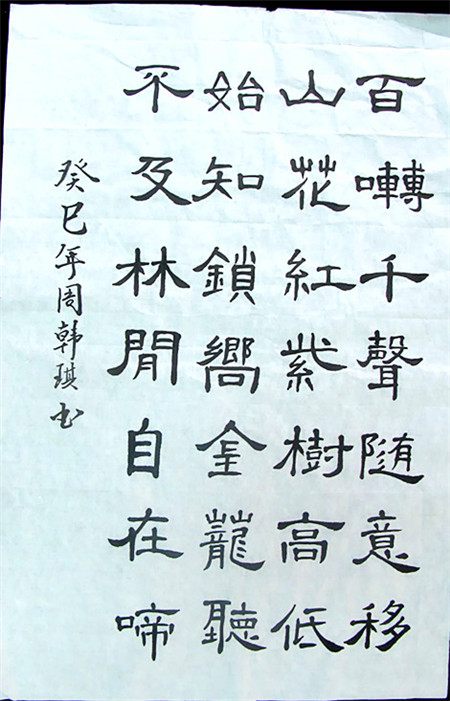 百囀千聲隨意移
山花紅紫樹高低
始知鎖嚮金蘢聽
不及林間自在啼
癸巳年周韩琪书